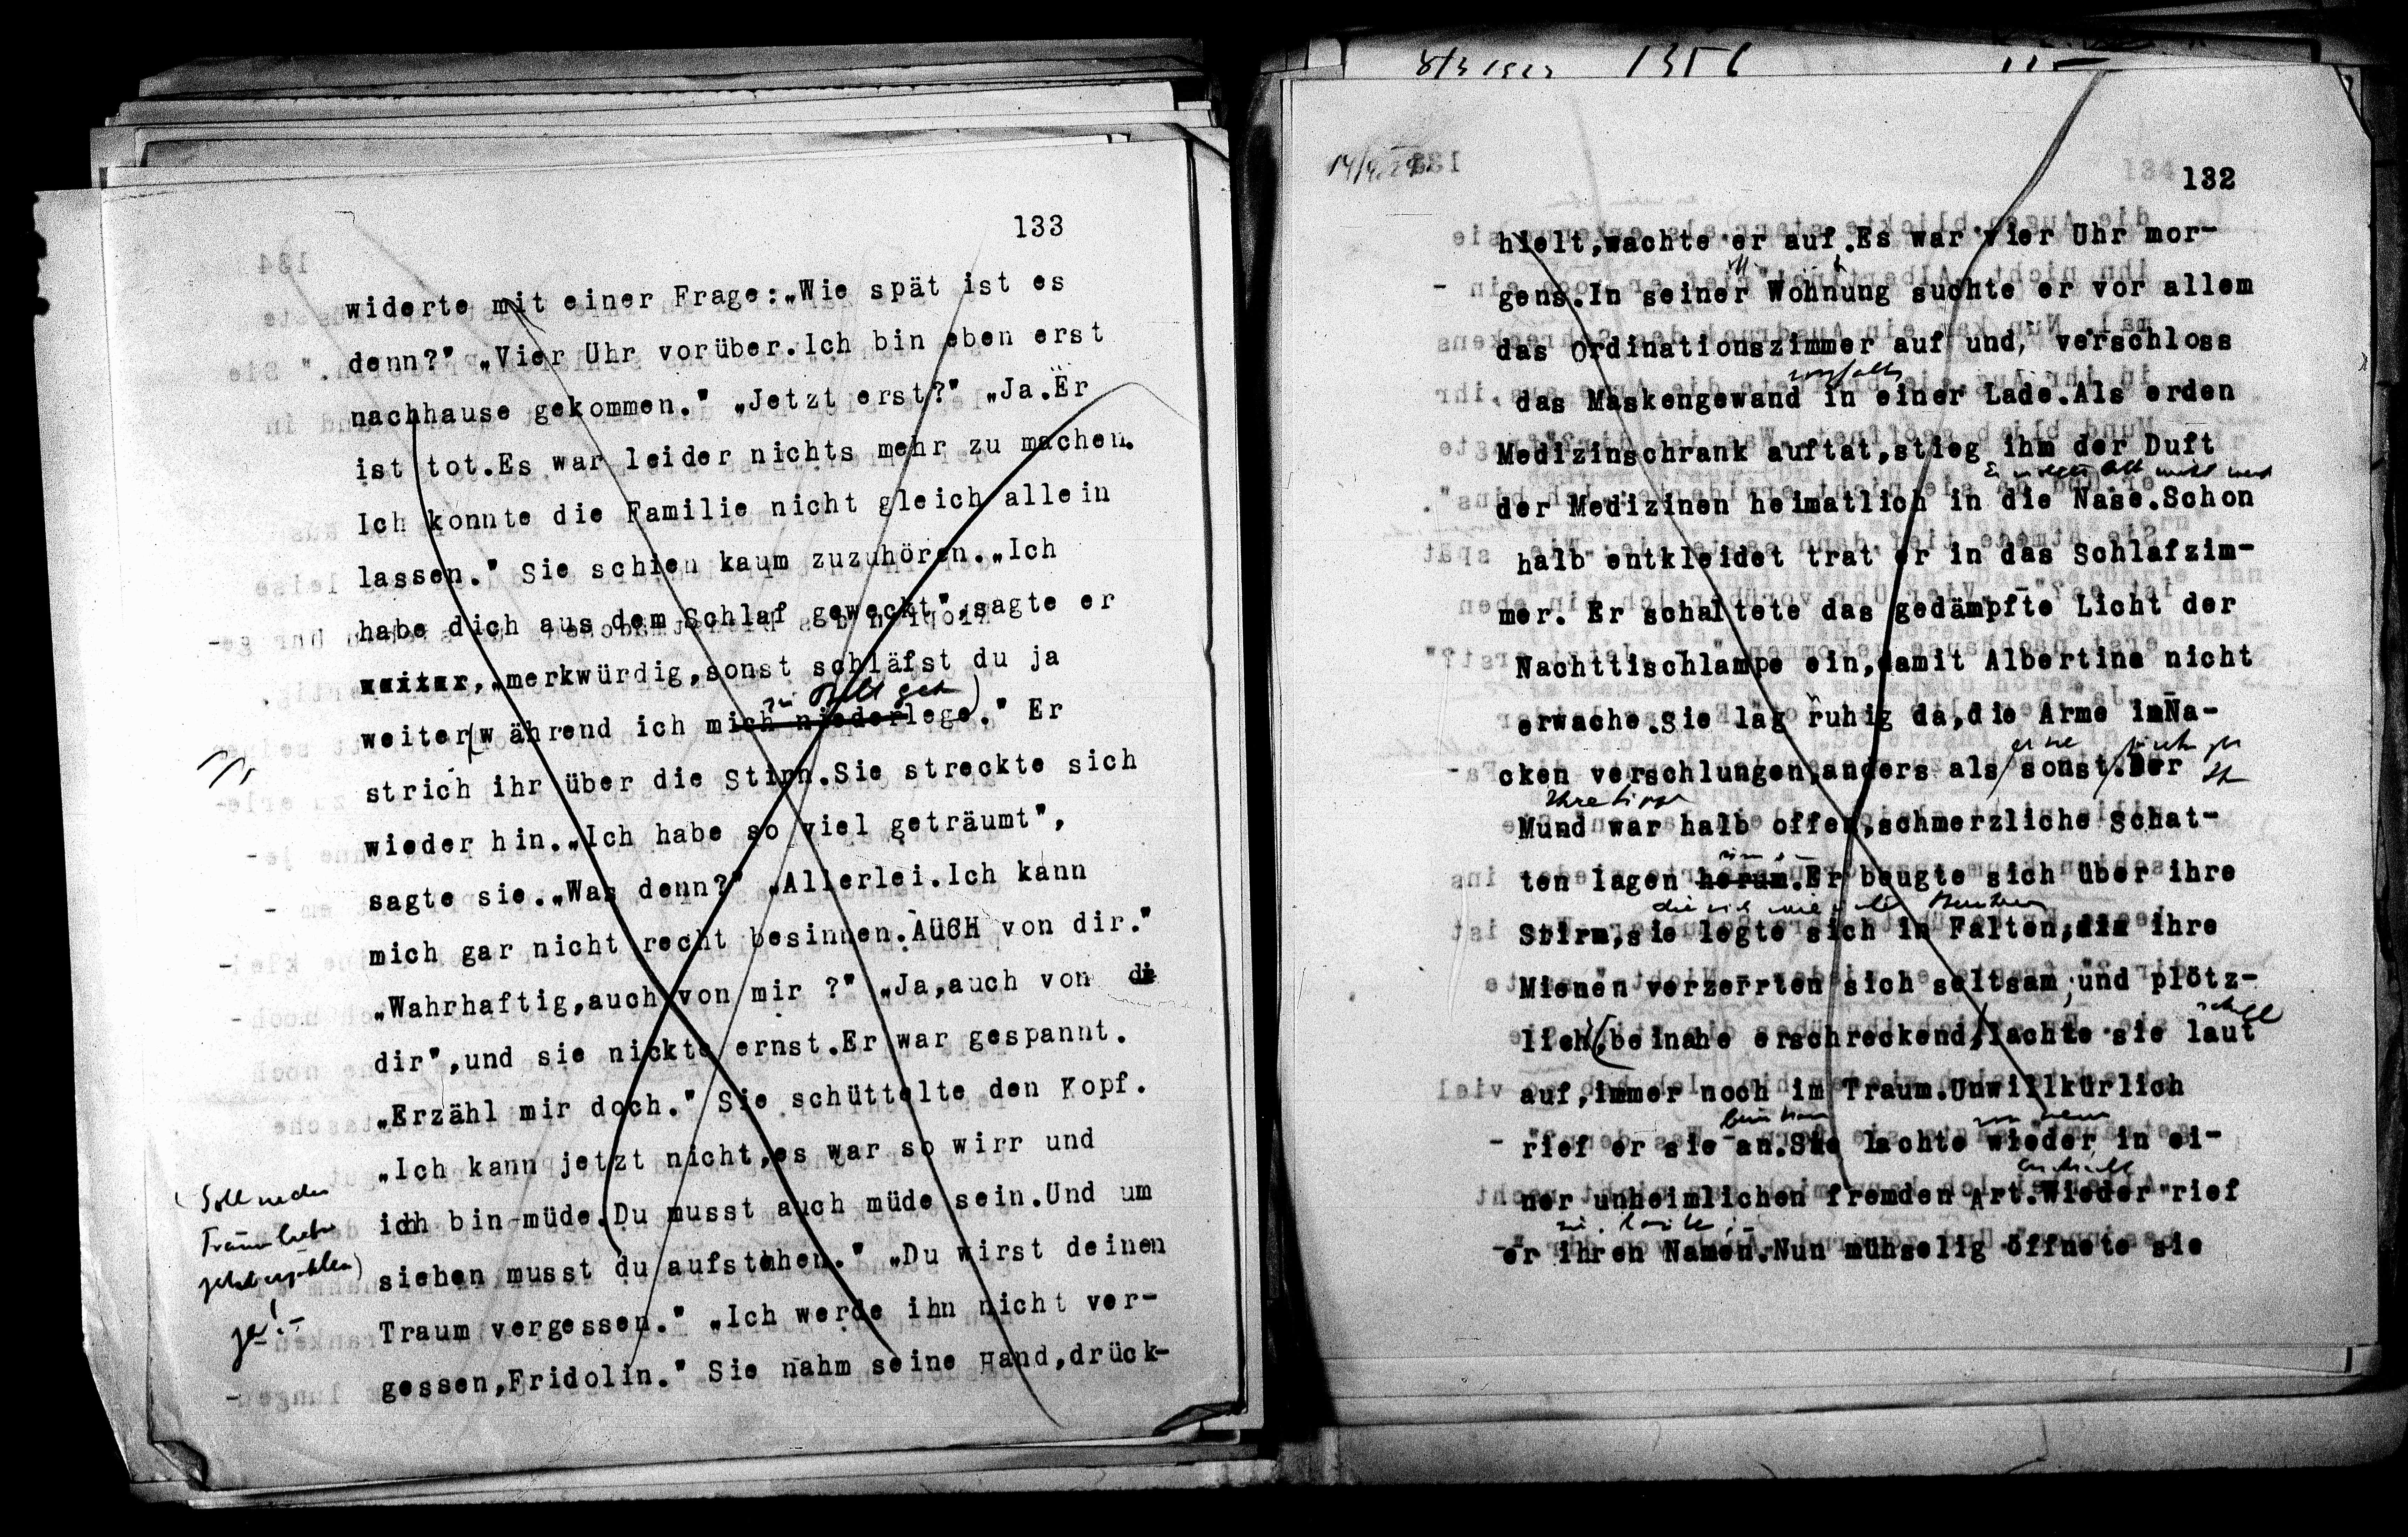 133
widerte mit einer Frage:„Wie spät ist es
denn?" „Vier Uhr vorüber.Ich bin eben erst
nachhause gekommen." „Jetzt erst?" „Ja.Er
ist tot.Es war leider nichts mehr zu machen.
Ich konnte die Familie nicht gleich allein
lassen." Sie schien kaum zuzuhören.„Ich
habe dich aus dem Schlaf geweckt",sagte er
weiter,„merkwürdig,sonst schläfst du ja
zu Bett geh
weiter(w ährend ich mich niederlege)." Er
strich ihr über die Stirn.Sie streckte sich
wieder hin.„Ich habe so viel geträumt",
sagte sie.„Was denn?" „Allerlei.Ich kann
mich gar nicht recht besinnen.AUCH von dir."
„Wahrhaftig,auch von mir ?" „Ja,auch von di
dir",und sie nickte ernst.Er war gespannt.
„Erzähl mir doch." Sie schüttelte den Kopf.
„Ich kann jetzt nicht,es war so wirr und
ich bin müde.Du musst auch müde sein.Und um
sieben musst du aufstehen." „Du wirst deinen
Traum vergessen." „Ich werde ihn nicht ver-
gessen,Fridolin." Sie nahm seine Hand,drück-
(Soll
Traum lieber
jetzt erzählen)
ja!-
1356
132
hielt,wachte er auf.Es war vier Uhr mor-
gens.In seiner Wohnung suchte er vor allem
das Ordinationszimmer auf und, verschloss
sorgfält
das Maskengewand in einer Lade.Als erden
Medizinschrank auftat,stieg ihm der Duft
der Medizinen heimatlich in die Nase.Schon
halb entkleidet trat er in das Schlafzim-
mer. Er schaltete das gedämpfte Licht der
Nachttischlampe ein,damit Albertine nicht
erwache.Sie lag ruhig da,die Arme imNa-
cken verschlungen,anders als sonst.Der
Ihre Lippe
Mund war halb offen,schmerzliche Schat-
ten lagen herum.Er beugte sich über ihre
Stirn,sie legte sich in Falten, ihre
Mienen verzerrten sich seltsam;und plötz-
schrill
lich(,beinahe erschreckend,lachte sie laut
auf,immer noch im Traum.Unwillkürlich
rief er sie an.Sie lachte wieder in ei-
ner unheimlichen fremden Art.Wieder rief
er ihren Namen.Nun mühselig öffnete sie